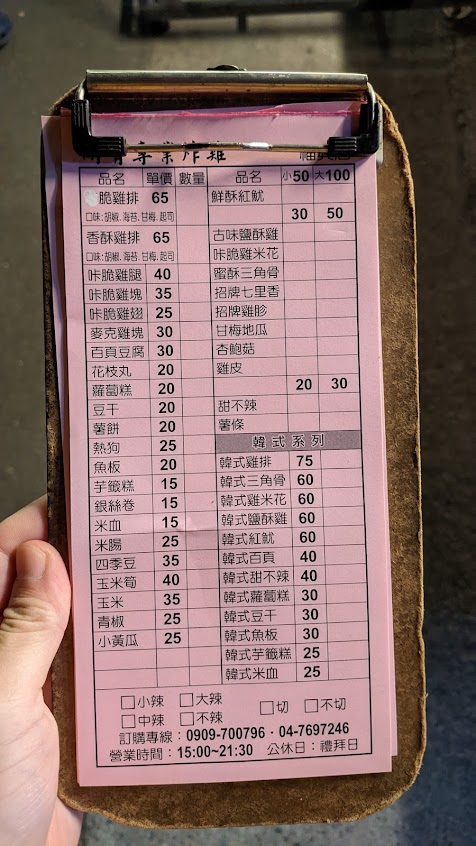 專業炸雞
品名 單價 數量
脆雞排 65
口味:胡椒.海苔.甘梅.起司
香酥雞排 65
口味:胡椒.海苔.甘梅.起司
咔脆雞腿 40
咔脆雞塊 35
咔脆雞翅 25
麥克雞塊 30
百頁豆腐 30
花枝丸 20
蘿蔔糕 20
豆干 20
薯餅 20
熱狗 25
魚板 20
芋籤糕 15
銀絲卷 15
米血 15
米腸 25
四季豆 35
玉米筍 40
玉米 35
青椒 25
小黃瓜 25
品名 小50 大100
鮮酥紅魷
30 50
古味鹽酥雞
咔脆雞米花
蜜酥三角骨
招牌七里香
招牌雞胗
甘梅地瓜
杏鮑菇
雞皮
20 30
甜不辣
薯條
韓式系列
韓式雞排 75
韓式三角骨 60
韓式雞米花 60
韓式鹽酥雞 60
韓式紅魷 60
韓式百頁 40
韓式甜不辣 40
韓式蘿蔔糕 30
韓式豆干 30
韓式魚板 30
韓式芋籤糕 25
韓式米血 25
□小辣 □大辣
□中辣 □不辣 □切 □不切
訂購專線：0909-700796・04-7697246
營業時間：15:00~21:30 公休日：禮拜日